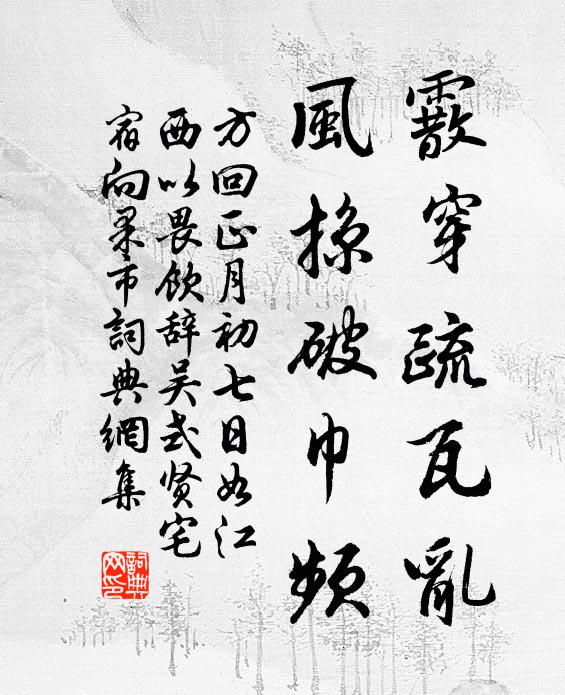 霰穿疏瓦亂
風掠破巾頻
方回正月初七日如江
西以畏飲辞吴式贤宅
宿向果市詞典網集
詞典
网印